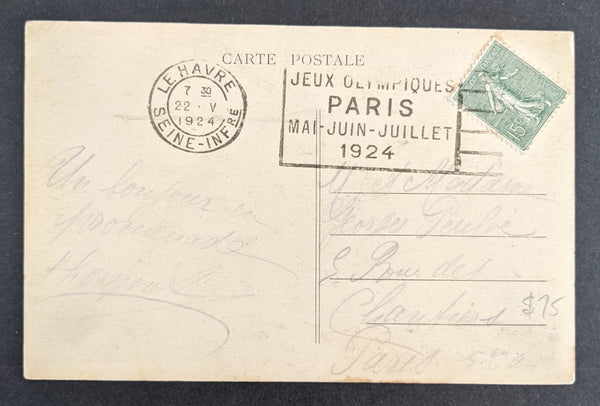 CARTE POSTALE
LE HAVRE
7 30
22 · V
1924
SEINE-INFRE
JEUX OLYMPIQUES
PARIS
MAI-JUIN-JUILLET
1924
15
Un bonjour en
promenade
M. et Madame
Georges
5 Rue des
Chantiers
Paris 5 en
$15